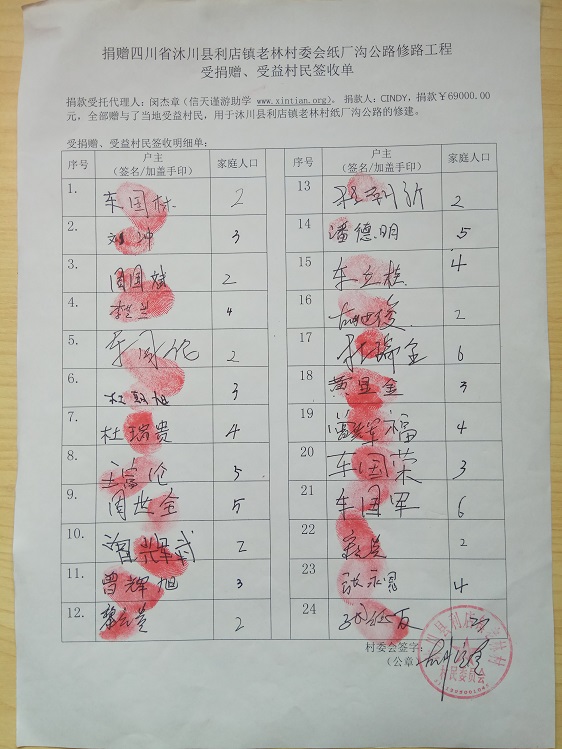 捐赠四川省沐川县利店镇老林村委会纸厂沟公路修路工程
受捐赠、受益村民签收单
捐款受托代理人：闵杰章（信天谨游助学 www.xintian.org)。 捐款人：CINDY，捐款￥69000.00
元，全部赠与了当地受益村民，用于沐川县利店镇老林村纸厂沟公路的修建。
受捐赠、受益村民签收明细单：
序号 户主（签名/加盖手印） 家庭人口 序号 户主（签名/加盖手印） 家庭人口
1. 车国林 2 13 2
2. 刘坤 3 14 潘德明 5
3. 周国斌 2 15 车立桂 4
4. 4 16 2
5. 2 17 杜瑞金 6
6. 杜朝旭 3 18 黄显金 3
7. 杜瑞贵 4 19 辉福 4
8. 5 20 车国荣 3
9. 周世全 5 21 车国军 6
10. 2 22 2
11. 曾辉旭 3 23 4
12. 2 24
村委会签字：
（公章）
村民委员会